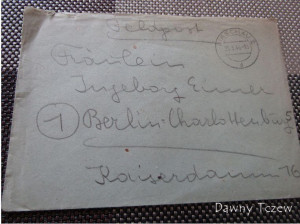 Feldpost
Fräulein
Ingeborg Eimer
① Berlin-Charlottenburg 9
Kaiserdamm 76
Dawny Tczew